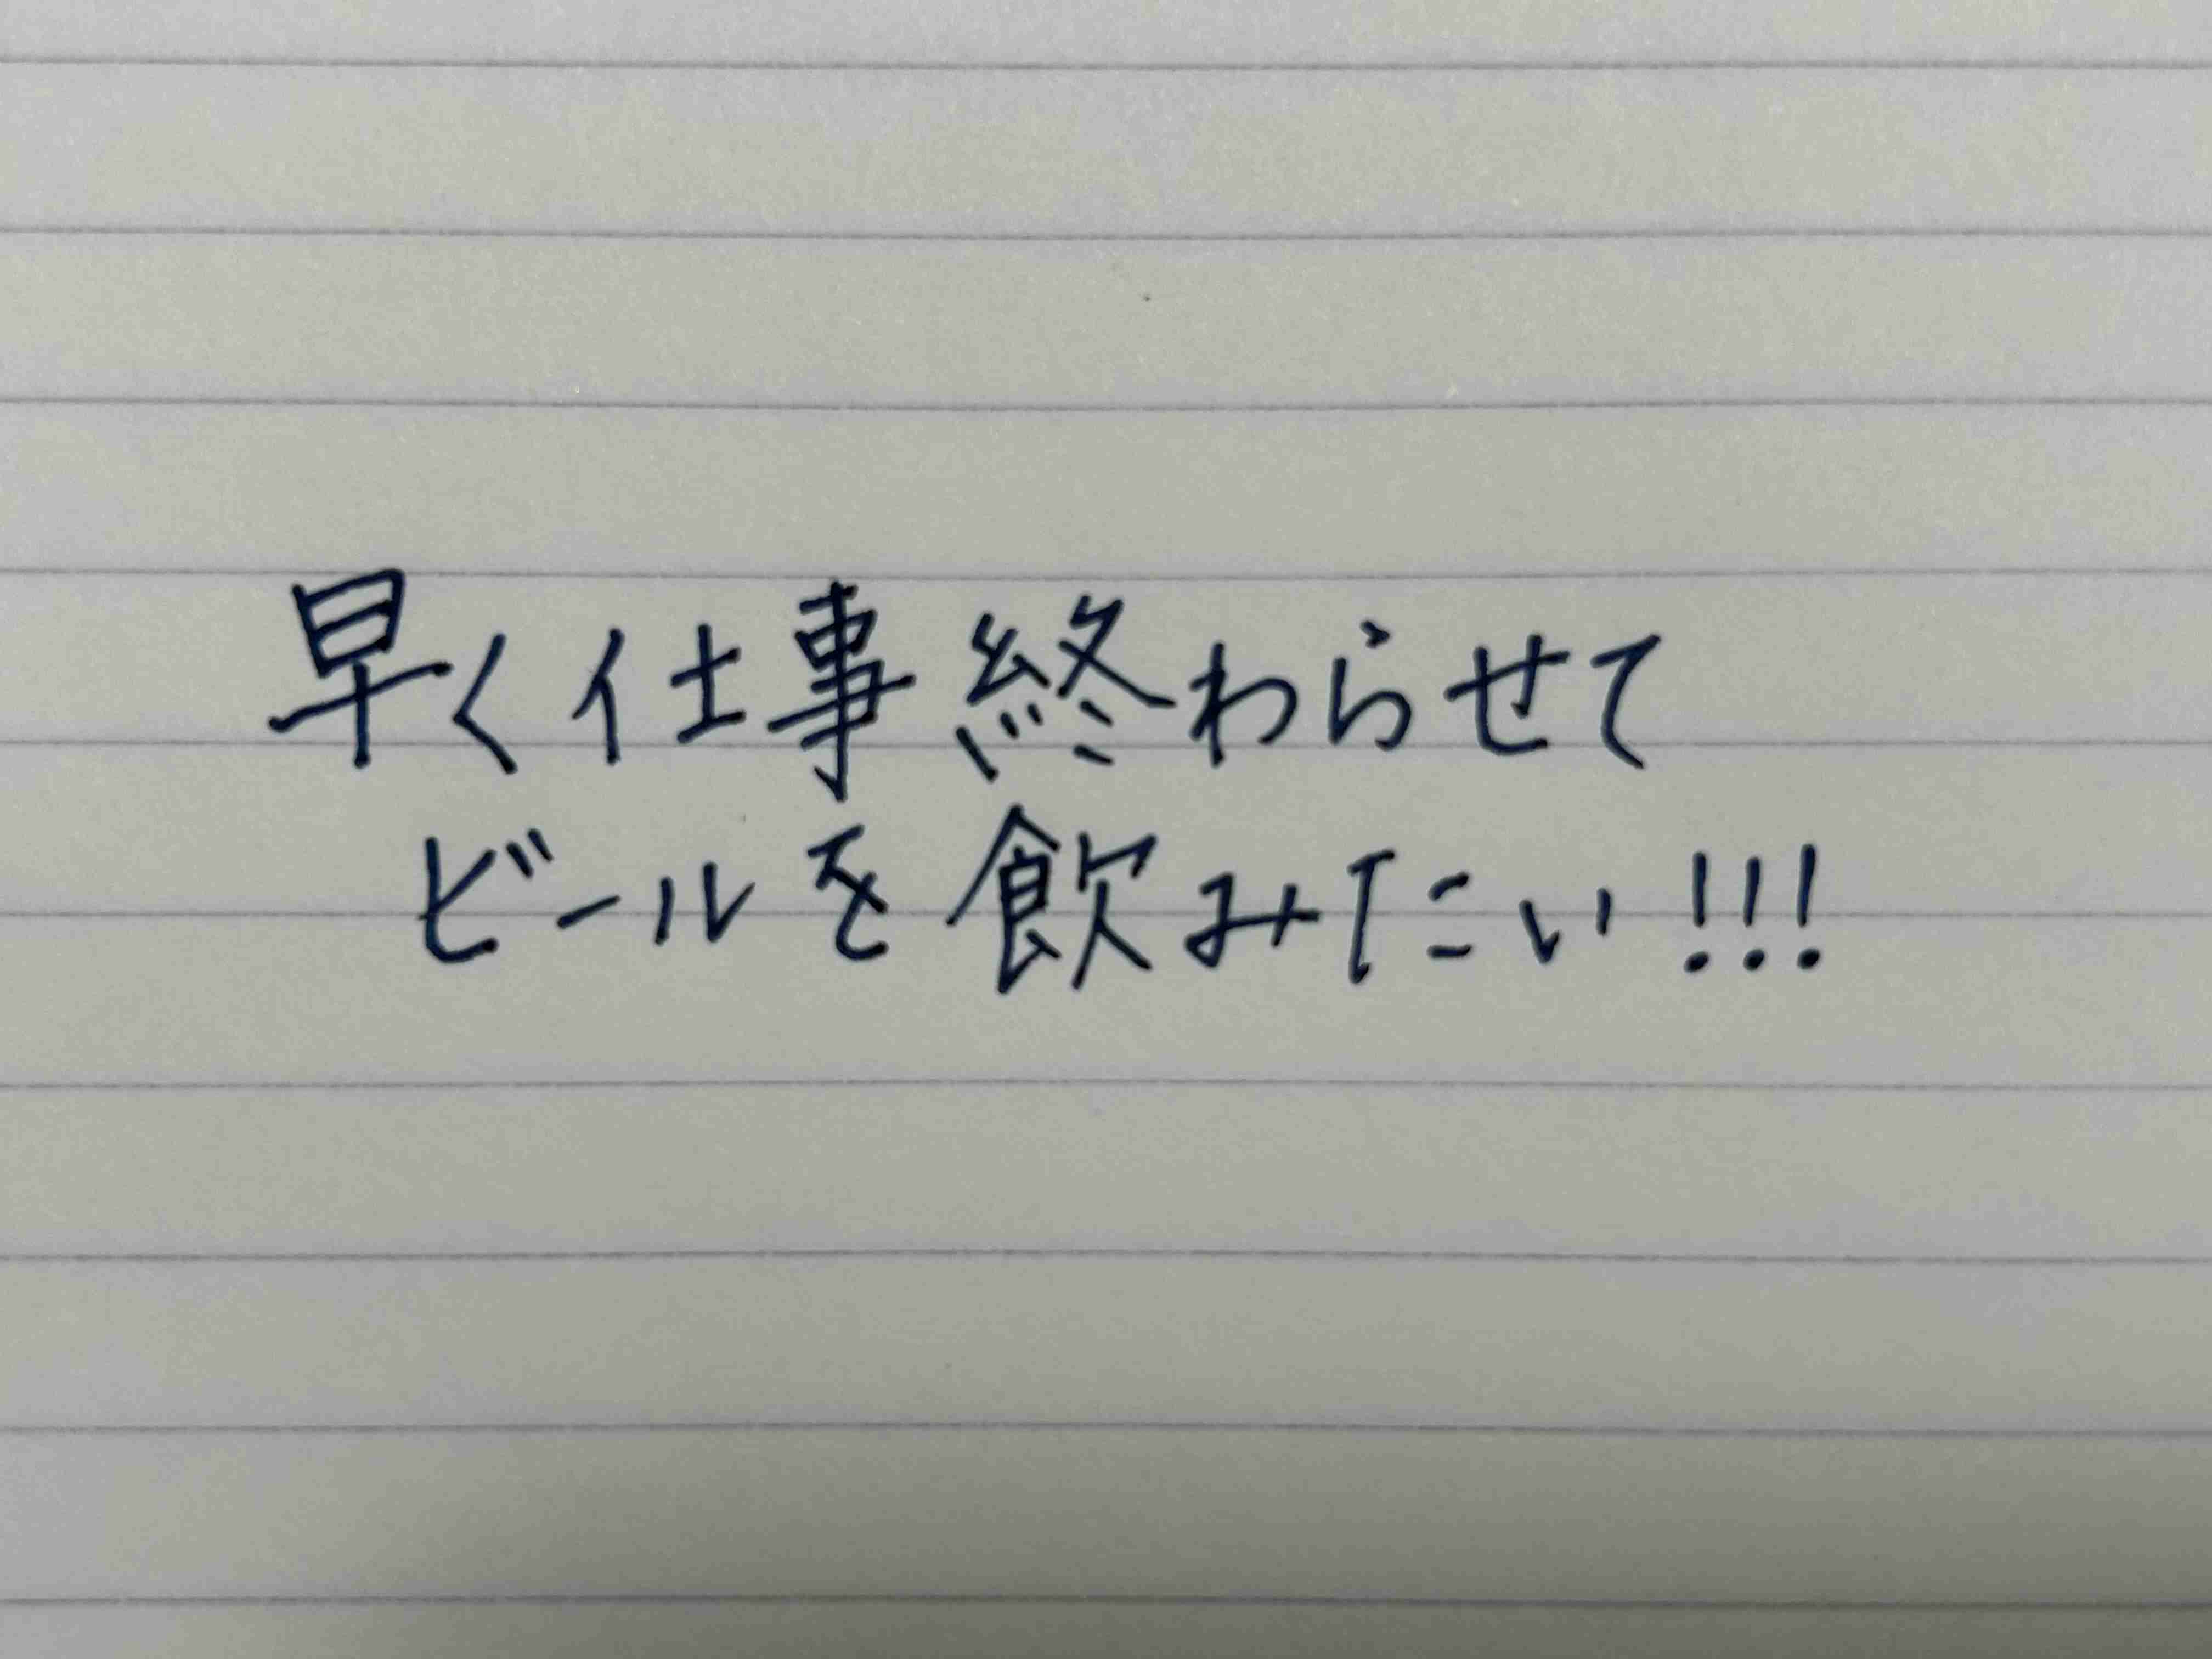 早く仕事終わらせて
ビールを飲みたい!!!